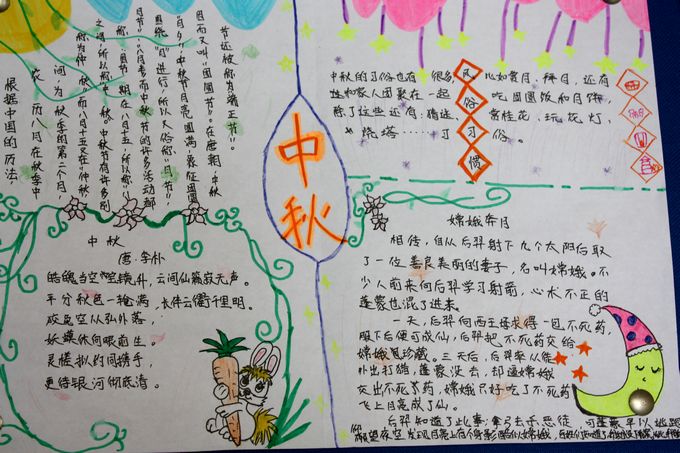 根据中国的历法
农历八月在秋季中
间,为秋季的第二个月,
称为"仲秋",而八月十五又在"仲秋"
之中,所以称"中秋"。中秋节有许多别
称:
节期在八月十五,所以称
"八月节"
"八月半"
因中秋节的许多活动都
围绕"月"进行,所以又俗称"月节"
"月夕"
中秋节月亮圆满,象征团圆,
因而又叫"团圆节"。在唐朝,中秋
节还被称为"端正节"。
中秋
中秋的习俗也有很多
比如赏月、拜月,还有
就和家人团聚在一起
吃团圆饭和月饼,
除了这些还有:猜谜、
赏桂花、玩花灯、
烧塔……
习俗。
风
俗
习
惯
中秋
唐·李朴
皓魄当空宝镜升,云间仙籁寂无声。
平分秋色一轮满,长伴云衢千里明。
狡兔空从弦外落,
妖蟆休向眼前生。
灵槎拟约同携手,
更待银河彻底清。
嫦娥奔月
相传,自从后羿射下九个太阳后取
了一位善良美丽的妻子,名叫嫦娥。不
少人前来向后羿学习射箭,心术不正的
蓬蒙也混了进来。
一天,后羿向西王母求得一包不死药,
服下后便可成仙,后羿把不死药交给
嫦娥珍藏。三天后,后羿率众徒
外出打猎,蓬蒙没去,却逼嫦娥
交出不死药,嫦娥只好吃了不死药
飞上月亮成了仙。
后羿知道了此事,拿弓去杀恶徒,可蓬蒙早以逃跑